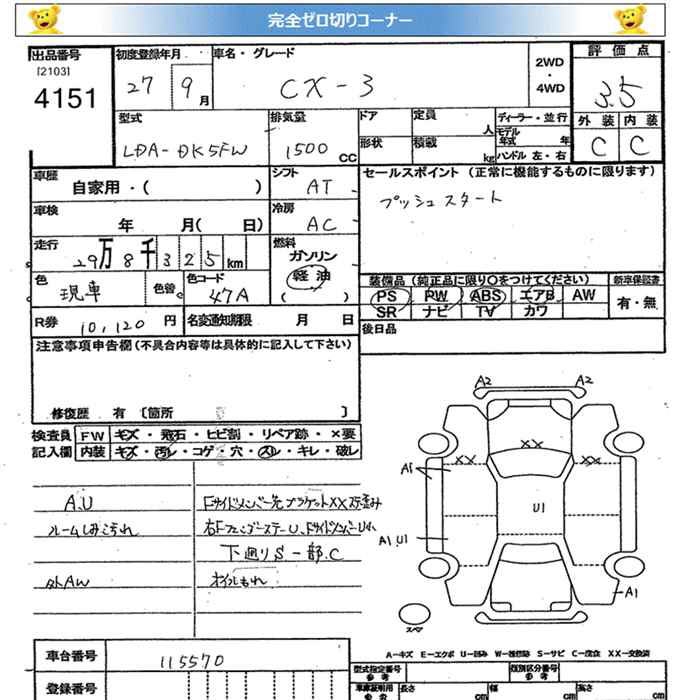 完全ゼロ切りコーナー
出品番号
[2103]
4151
初度登録年月
27 9月
車名・グレード
CX-3
2WD
・
4WD
評価点
3.5
外装 内装
C C
型式
LDA-DK5FW
排気量
1500 CC
ドア
形状
定員 人
積載 kg
ディーラー・並行
モデル年式 年
ハンドル 左・右
車歴
自家用・( )
シフト
AT
セールスポイント (正常に機能するものに限ります)
プッシュスタート
車検
年 月( 日)
冷房
AC
走行
29万8千325km
燃料
ガソリン
軽油
( )
色
現車
色替
色コード
47A
装備品 (純正品に限り○をつけてください)
PS PW ABS エアB AW
SR ナビ TV カワ
新車保証書
有・無
R券 10,120 円
名変通知期限 月 日
後日品
注意事項申告欄(不具合内容等は具体的に記入して下さい)
修復歴 有 [箇所 ]
検査員
記入欄
FW キズ・飛石・ヒビ割・リペア跡・×要
内装 キズ・汚レ・コゲ・穴・スレ・キレ・破レ
A.U
ルームしみこげれ
外AW
Fサイドメンバー先ブラケットXX歪み
下廻りS一部.C
オイルもれ
A2 A2
XX
XX XX
A1
U1
A1 U1
A1
スペア
A-キズ E-エクボ U-凹み W-補修跡 S-サビ C-腐食 XX-交換済
車台番号
115570
登録番号
型式指定番号
参考
類別区分番号
参考
車庫証明用
参考
長さ cm
幅 cm
高さ cm